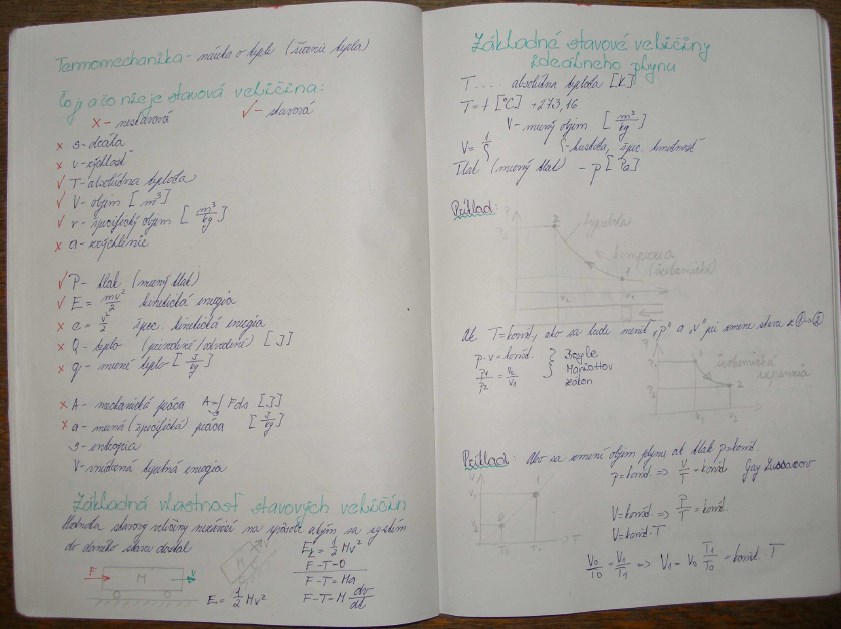 Termomechanika - náuka o teple (šírenie tepla)
Čo je a čo nie je stavová veličina:
x - nestavová ✓ - stavová
x s - dráha
x v - rýchlosť
✓ T - absolútna teplota
✓ V - objem [m³]
✓ v - špecifický objem [m³/kg]
x a - zrýchlenie
✓ P - tlak (merný tlak)
✓ E = mv²/2 kinetická energia
x e = v²/2 špec. kinetická energia
x Q - teplo (privedené/odvedené) [J]
x q - merné teplo [J/kg]
x A - mechanická práca A = ∫ F ds [J]
x a - merná (špecifická) práca [J/kg]
s - entropia
V - vnútorná tepelná energia
Základná vlastnosť stavových veličín
Hodnota stavovej veličiny nezávisí na spôsobe akým sa systém
do daného stavu dostal
F M v
M v
E = 1/2 Mv²
Ek = 1/2 Mv²
F - T = 0
F - T = Ma
F - T = M dv/dt
Základné stavové veličiny
ideálneho plynu
T .... absolútna teplota [K]
T = t [°C] + 273,16
V - merný objem [m³/kg]
V = 1/ρ ρ - hustota, špec. hmotnosť
Tlak (merný tlak) - p [Pa]
Príklad:
2 hyperbola
kompresia
1 (izotermická)
v₂ v₁
Ak T = konšt., ako sa bude meniť „p" a „v" pri zmene stavu z ①→②
p.v = konšt. } Boyle
p1/p2 = v2/v1 } Mariottov
zákon
P₁ 1 izotermická
expanzia
P₂ 2
v₁ v₂
Príklad: Ako sa zmení objem plynu ak tlak p=konšt.
p=konšt => V/T = konšt. Gay Lussacov
V=konšt => P/T = konšt.
V=konšt.T
V0/T0 = V1/T1 => V1 = V0 T1/T0 = konšt. T
V
V₁ 1
V₀ 0
T₀ T₁ T